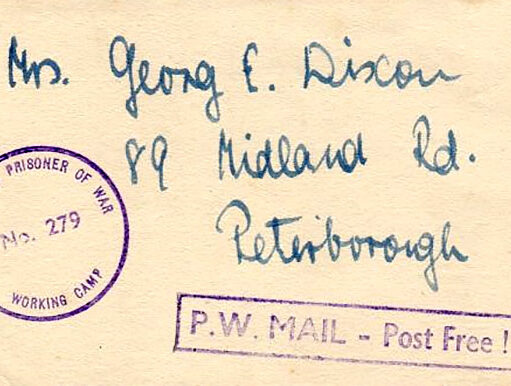 Mrs. Georg E. Dixon
89 Midland Rd.
Peterborough
PRISONER OF WAR
No. 279
WORKING CAMP
P.W. MAIL - Post Free !